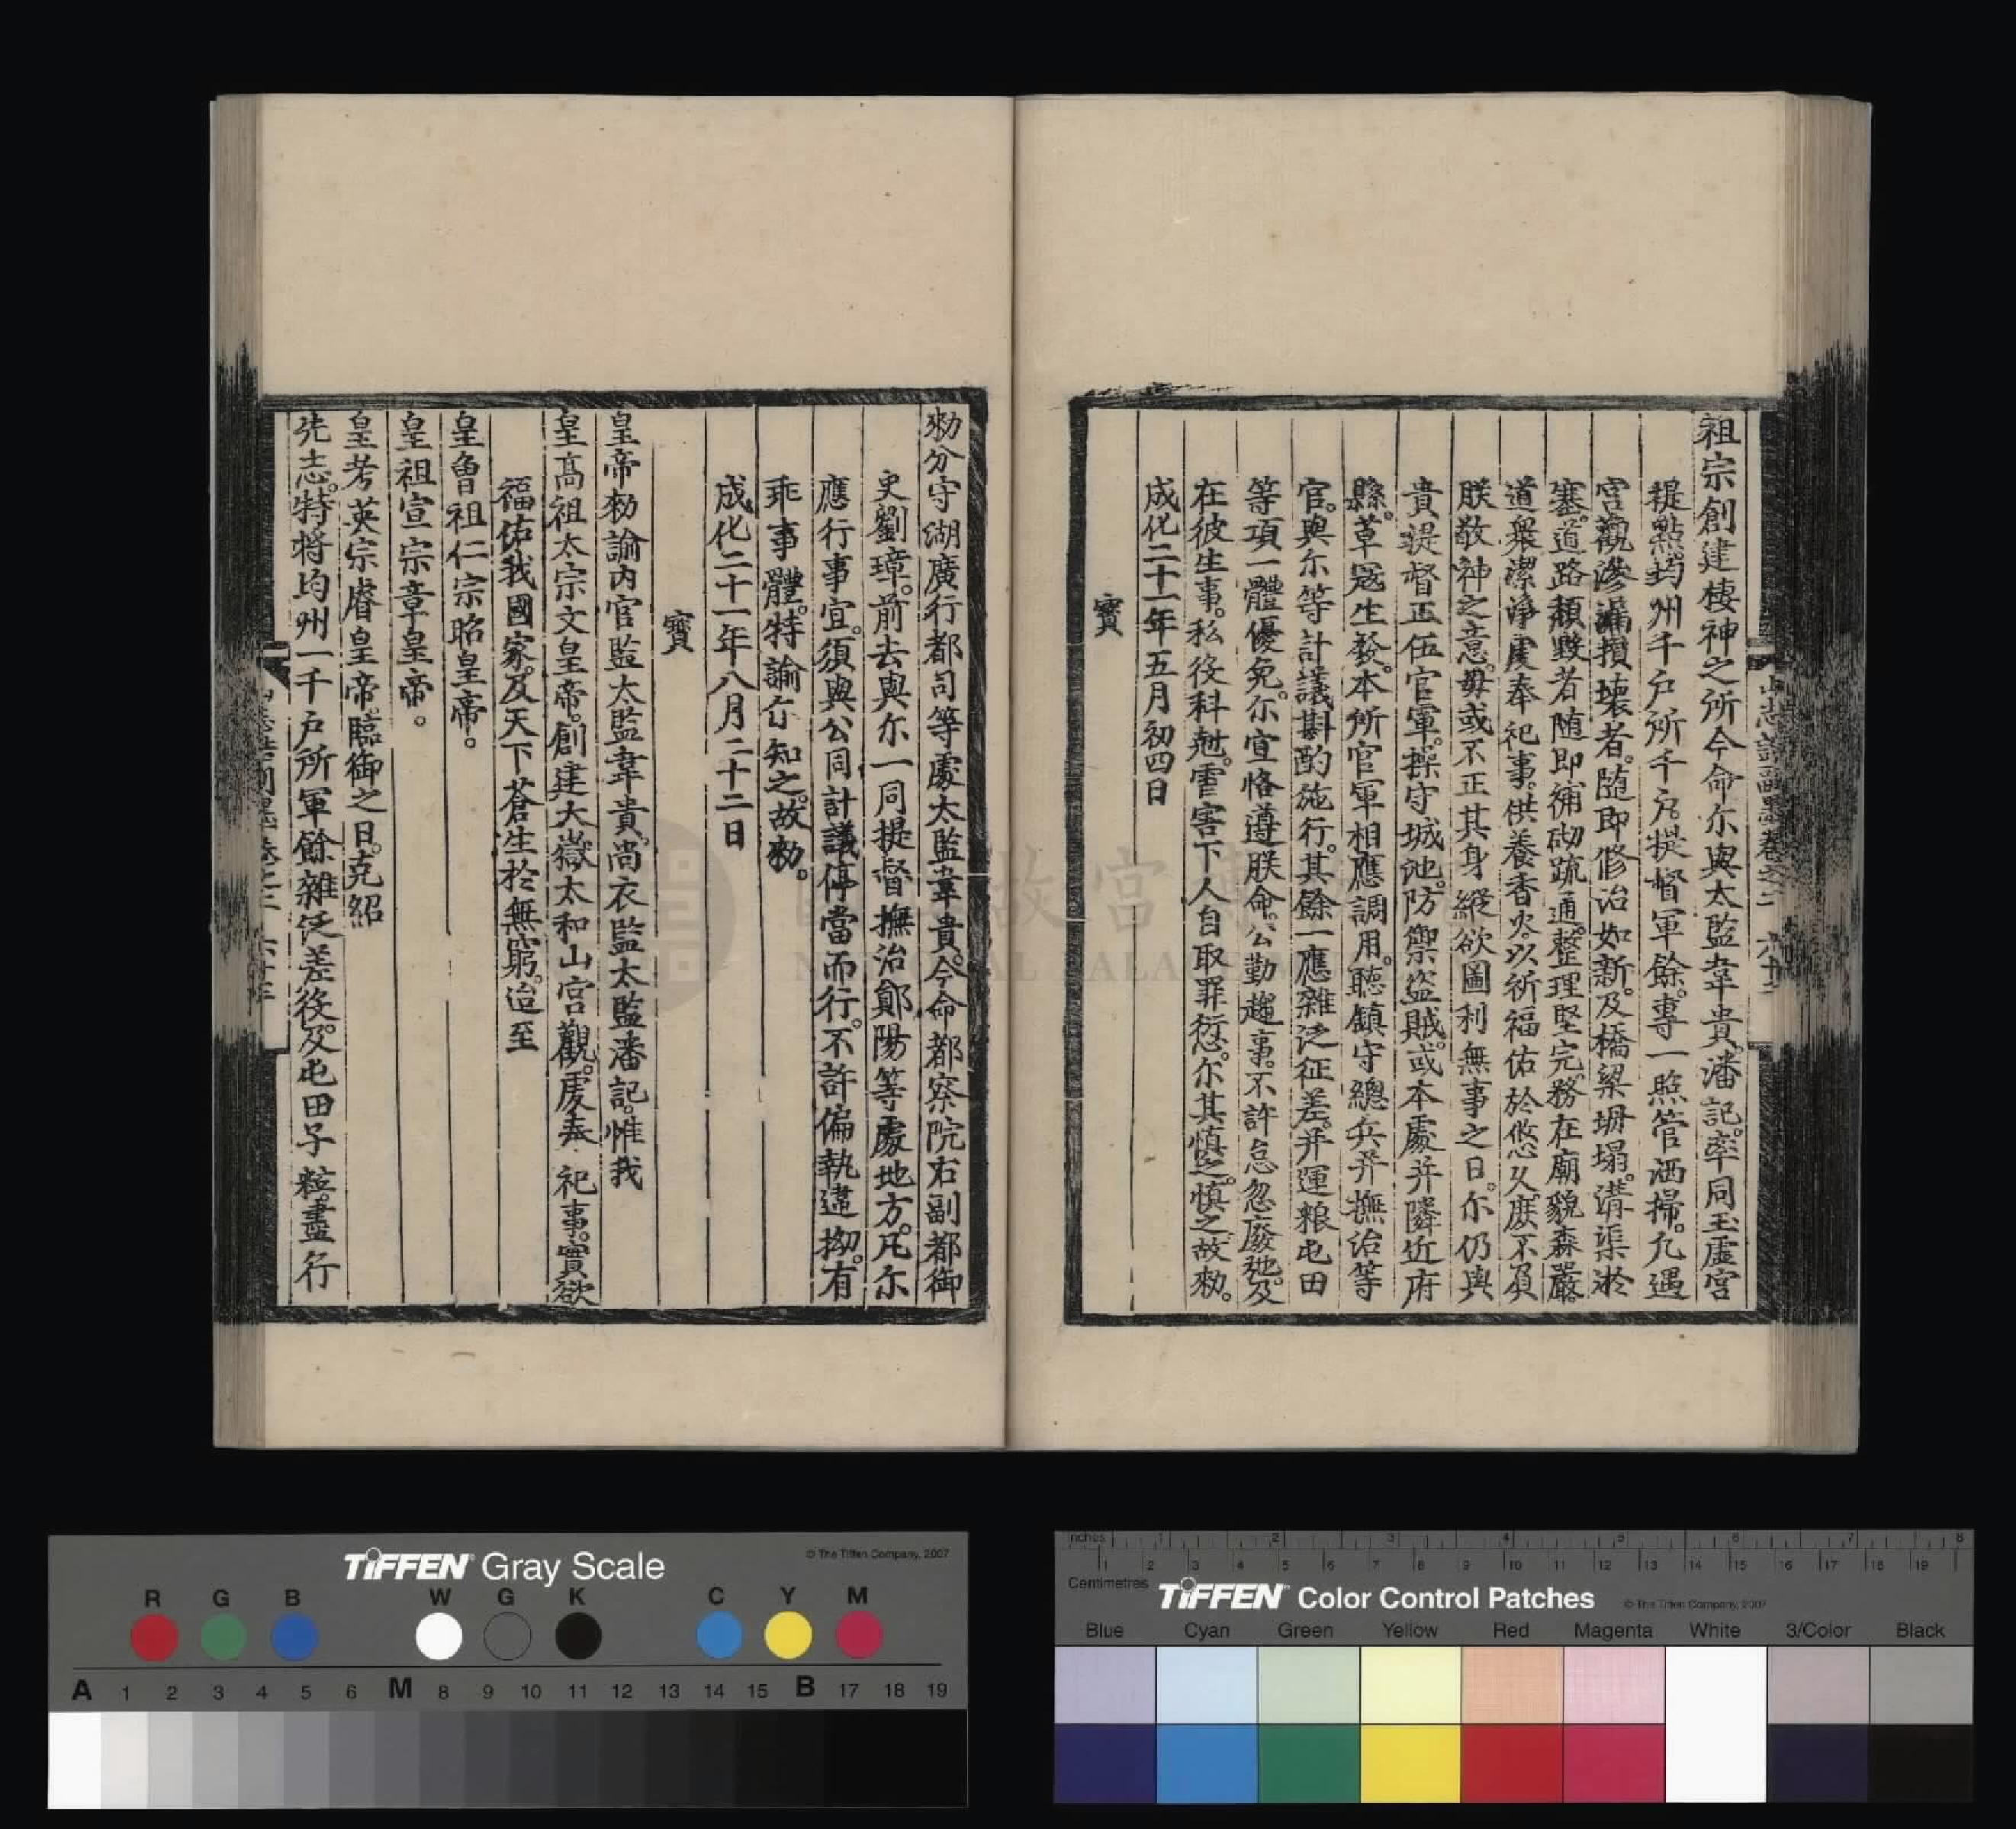 祖宗創建棲神之所今命尓與太監韋貴潘記。率同玉虛宮
提點。均州千戶所千戶。提督軍餘。專一照管洒掃。凢遇
宮觀滲漏損壞者。隨即修治如新。及橋梁坍塌。溝渠淤
塞。道路頹毀者。隨即補砌疏通。整理堅完。務在廟貌森嚴。
道衆潔淨。虔奉祀事。供養香火。以祈福佑於悠久。庶不負
朕敬神之意。毋或不正其身。縱欲圖利無事之日。尓仍與
貴提督正伍官軍。操守城池。防禦盜賊。或本處并隣近府
縣。草冦生發。本所官軍相應調用。聽鎮守總兵并撫治等
官。與尓等計議斟酌施行。其餘一應雜泛征差。并運粮屯田
等項。一體優免。尓宜恪遵朕命。公勤趨事。不許怠忽廢弛。及
在彼生事。私役科尅。害下人。自取罪愆。尓其慎之。慎之。故勑。
成化二十一年五月初四日
寶
勑分守湖廣行都司等處太監韋貴。今命都察院右副都御
史劉璋。前去與尓一同提督撫治鄖陽等處地方。凡尓
應行事宜。須與公同計議停當而行。不許偏執違拗。有
乖事體。特諭尓知之。故勑。
成化二十一年八月二十二日
寶
皇帝勑諭内官監太監韋貴。尚衣監太監潘記。惟我
皇髙祖太宗文皇帝。創建大嶽太和山宮觀。虔奉祀事。實欲
福佑我國家。及天下蒼生於無窮。迨至
皇曾祖仁宗昭皇帝。
皇祖宣宗章皇帝。
皇考英宗睿皇帝。臨御之日。克紹
先志。特將均州一千戶所軍餘雜泛差役。及屯田子粒。盡行
國立故宮博物院
NATIONAL PALACE MUSEUM
TIFFEN Gray Scale
© The Tiffen Company, 2007
R G B W G K C Y M
A 1 2 3 4 5 6 M 8 9 10 11 12 13 14 15 B 17 18 19
Inches 1 2 3 4 5 6 7 8
1 2 3 4 5 6 7 8 9 10 11 12 13 14 15 16 17 18 19
Centimetres
TIFFEN Color Control Patches
© The Tiffen Company, 2007
Blue Cyan Green Yellow Red Magenta White 3/Color Black